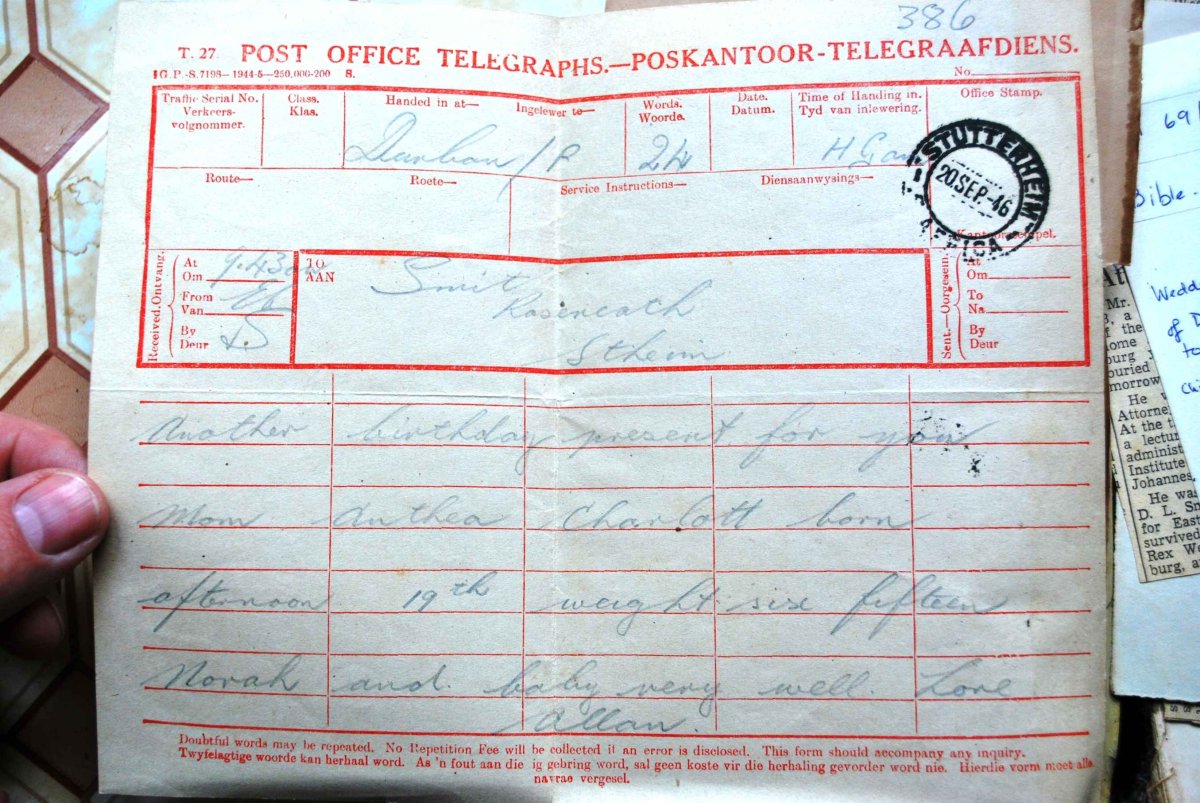 386
T. 27. POST OFFICE TELEGRAPHS.—POSKANTOOR-TELEGRAAFDIENS.
G.P.-S.7198—1944-5—250,000-200 S.
No.
Traffic Serial No. Verkeers-volgnommer.
Class. Klas.
Handed in at— Ingelewer te—
Words. Woorde.
Date. Datum.
Time of Handing in. Tyd van inlewering.
Office Stamp.
Durban / P
24
STUTTERHEIM
20.SEP.46
AFRICA
Route— Roete—
Service Instructions— Diensaanwysings—
Received.—Ontvang.
At Om 9.43am
From Van
By Deur
TO AAN
Smit
Roseneath
Stheim
Sent.—Oorgesein.
At Om
To Na
By Deur
Another birthday present for you
Mom Anthea Charlott born
afternoon 19th weight six fifteen
Norah and baby very well. Love
Allan.
Doubtful words may be repeated. No Repetition Fee will be collected if an error is disclosed. This form should accompany any inquiry.
Twyfelagtige woorde kan herhaal word. As 'n fout aan die ig gebring word, sal geen koste vir die herhaling gevorder word nie. Hierdie vorm moet alle
navrae vergesel.
69
Bible
Wedd
of D
to
Chi
Mr.
of the
home
burg J
buried
morrow
He
Attorne
At the t
a lectur
administ
Institute
Johannes
He wa
D. L. Sn
for East
survived
Rex We
burg, a